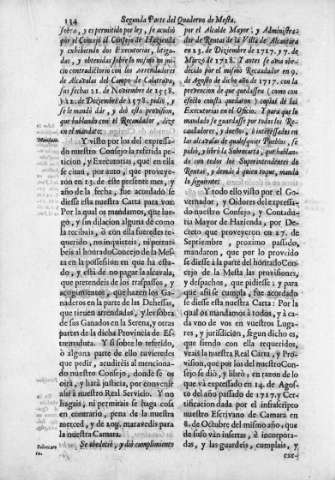 134 Segunda Parte del Quaderno de Mesta.
sobra, y es permitido por ley, se acudió
por el Concejo al Consejo de Hazienda
y exhibiendo dos Executorias, litiga-
das, y obtenidas sobre lo mismo en jui-
cio contradictorio con los arrendadores
de Alcavalas del Campo de Calatrava,
sus fechas 21. de Noviembre de 1558.
y 22. de Diciembre de 1578. pidió, y
se le mandó dar, y dió esta provision,
que hablando con el Recaudador, dize
en el mandato:
Mandato.
Y visto por los del expressa-
do nuestro Consejo la referida pe-
ticion, y Executorias, que en ella
se citan, por auto, que proveye-
ron en 23. de este presente mes, y
año de la fecha, fue acordado se
diesse esta nuestra Carta para vos:
Por la qual os mandamos, que lue-
go, y sin dilacion alguna de como
la recibais, ò con ella fueredes re-
querido, no inquieteis, ni pertur-
beis al honrado Concejo de la Mes-
ta en la possession en que ha esta-
do, y està de no pagar la alcavala,
que pretendeis de los traspassos, y
acogimientos, que hacen los Ga-
naderos en la parte de las Dehessas,
que tienen arrendadas, y les sobra
de sus Ganados en la Serena, y otras
partes de la dicha Provincia de Es-
tremadura. Y si sobre lo referido,
ò alguna parte de ello tuvieredes
que pedir, acudireis al menciona-
do nuestro Consejo, donde se os
oirà, y harà justicia, por convenir
assi à nuestro Real Servicio. Y no
hagais, ni permitais se haga cosa
en contrario, pena de la nuestra
merced, y de 20y. maravedis para
la nuestra Camara.
Se obedeciò, y diò cumplimiento
por el Alcalde Mayor, y Administra-
dor de Rentas de la Villa de Alcantara
en 23. de Diciembre de 1717. y 7. de
Março de 1718. Y antes se avia obe-
decido por el mismo Recaudador en 9.
de Agosto de dicho año de 1717. con la
prevencion de que quedassen (como con
efecto consta quedaron) copias de las
Executorias en el Oficio. Y para que lo
mandado se guardasse por todos los Re-
caudadores, y dueños, è interessados en
las alcavalas de qualesquier Pueblos, se
pidiò, y librò la Sobrecarta, que hablan-
do con todos los Superintendentes de
Rentas, y demàs à quien toque, manda
lo siguiente:
Y todo ello visto por el Go-
vernador, y Oidores del expressa-
do nuestro Consejo, y Contadu-
ria Mayor de Hazienda, por De-
creto que proveyeron en 27. de
Septiembre, proximo passado,
mandaron, que por lo proveido
se diesse à la parte del honrado Con-
cejo de la Mesta las provisiones,
y despachos, que pidiesse; y para
que assi se cumpla, fue acordado
se diesse esta nuestra Carta: Por la
qual os mandamos à todos, y à ca-
da uno de vos en vuestros Luga-
res, y jurisdicion, segun dicho es,
que siendo con ella requeridos,
veais la nuestra Real Carta, y Pro-
vision, que por los del nuestro Con-
sejo se diò, y librò, en razon de lo
que và expressado en 14. de Agos-
to del año passado de 1717. y Cer-
tificacion dada por el infrascripto
nuestro Escrivano de Camara en
8. de Octubre del mismo año, que
de suso vàn insertos, è incorpora-
das, y guardeis, cumplais, y
exe-